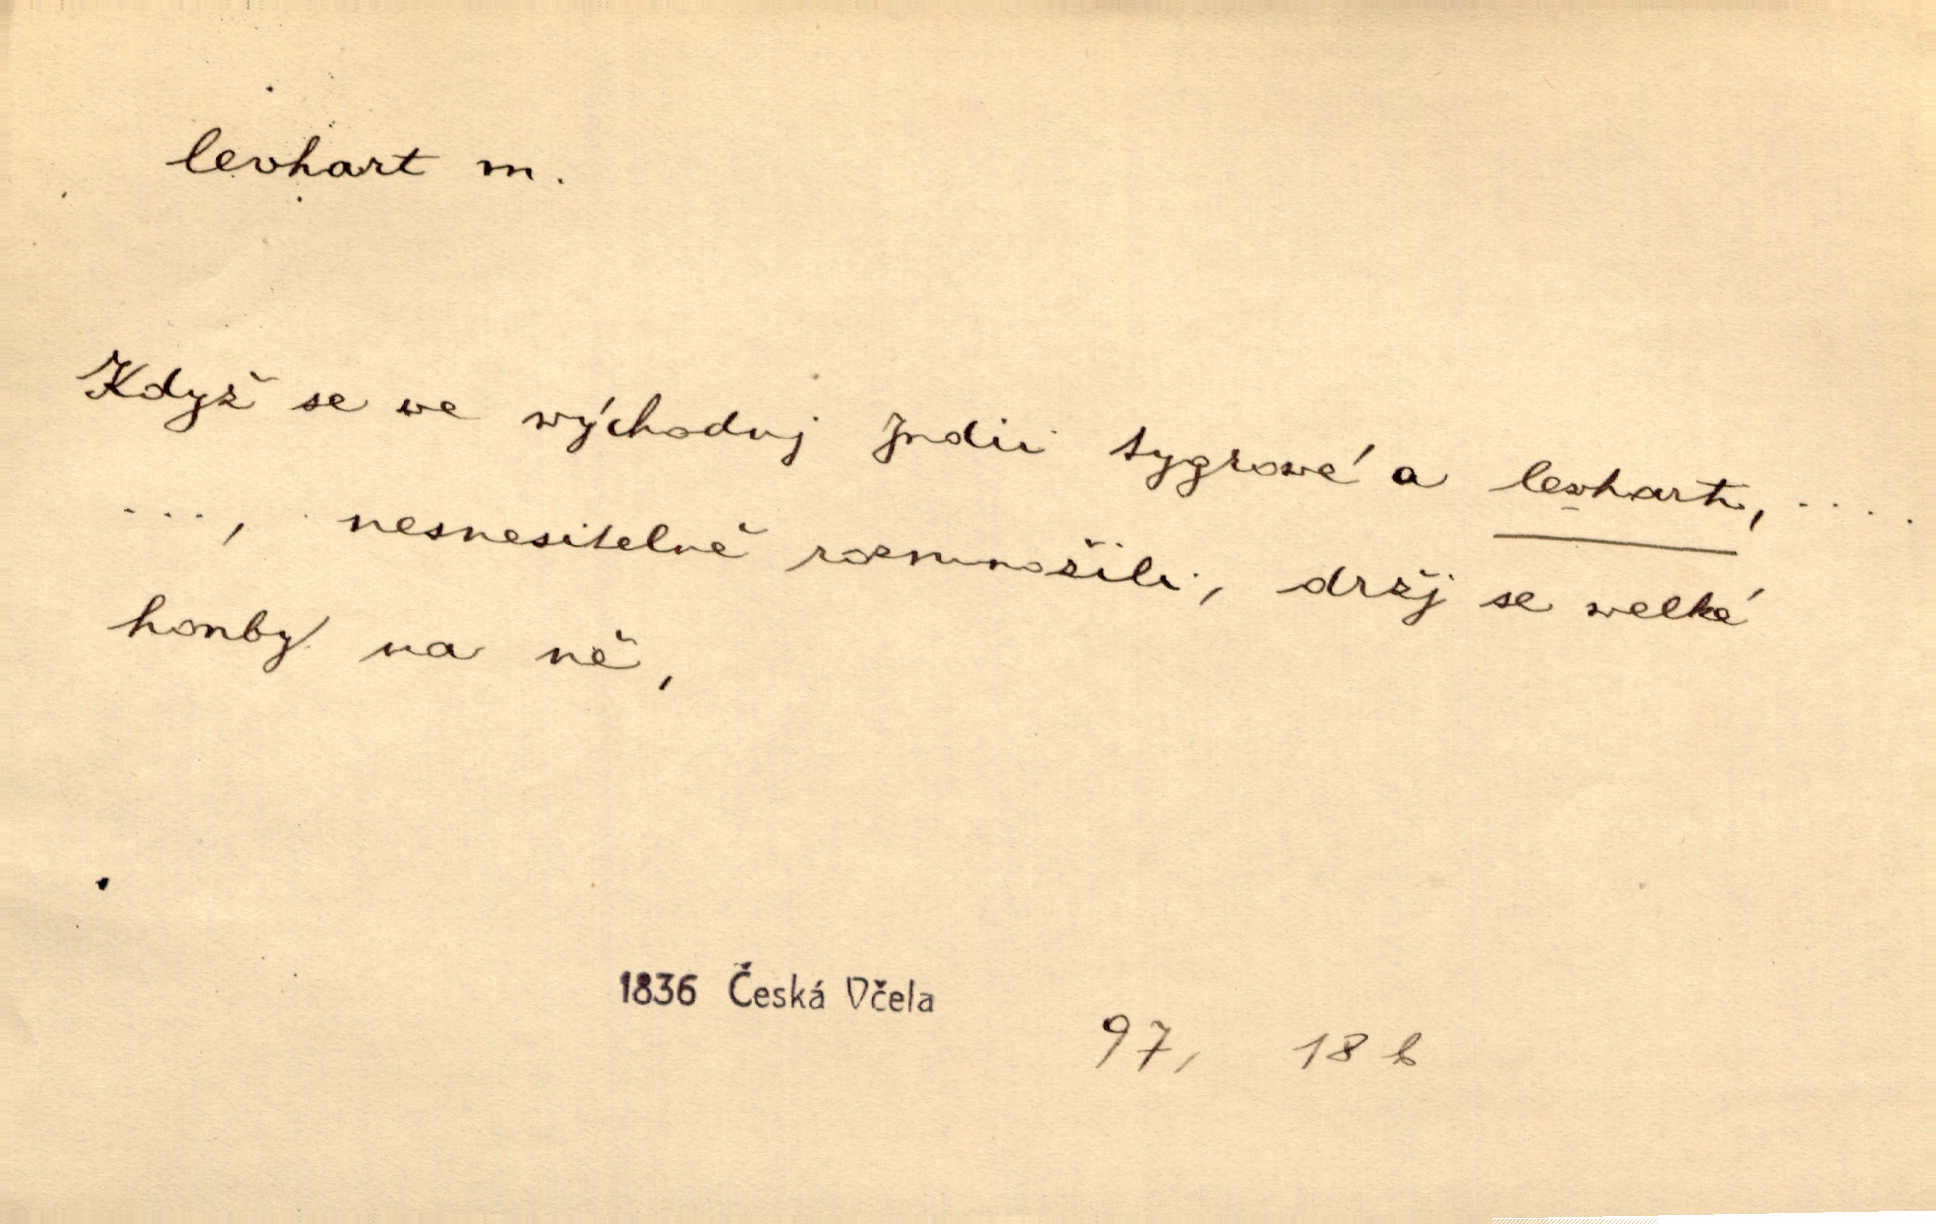 levhart m.
Když se we wýchodnj Jndii tygrowé a levharti, ....
..., nesnesitelně rozmnožili, držj se welké
honby na ně,
1836 Česká Včela
97, 18 b